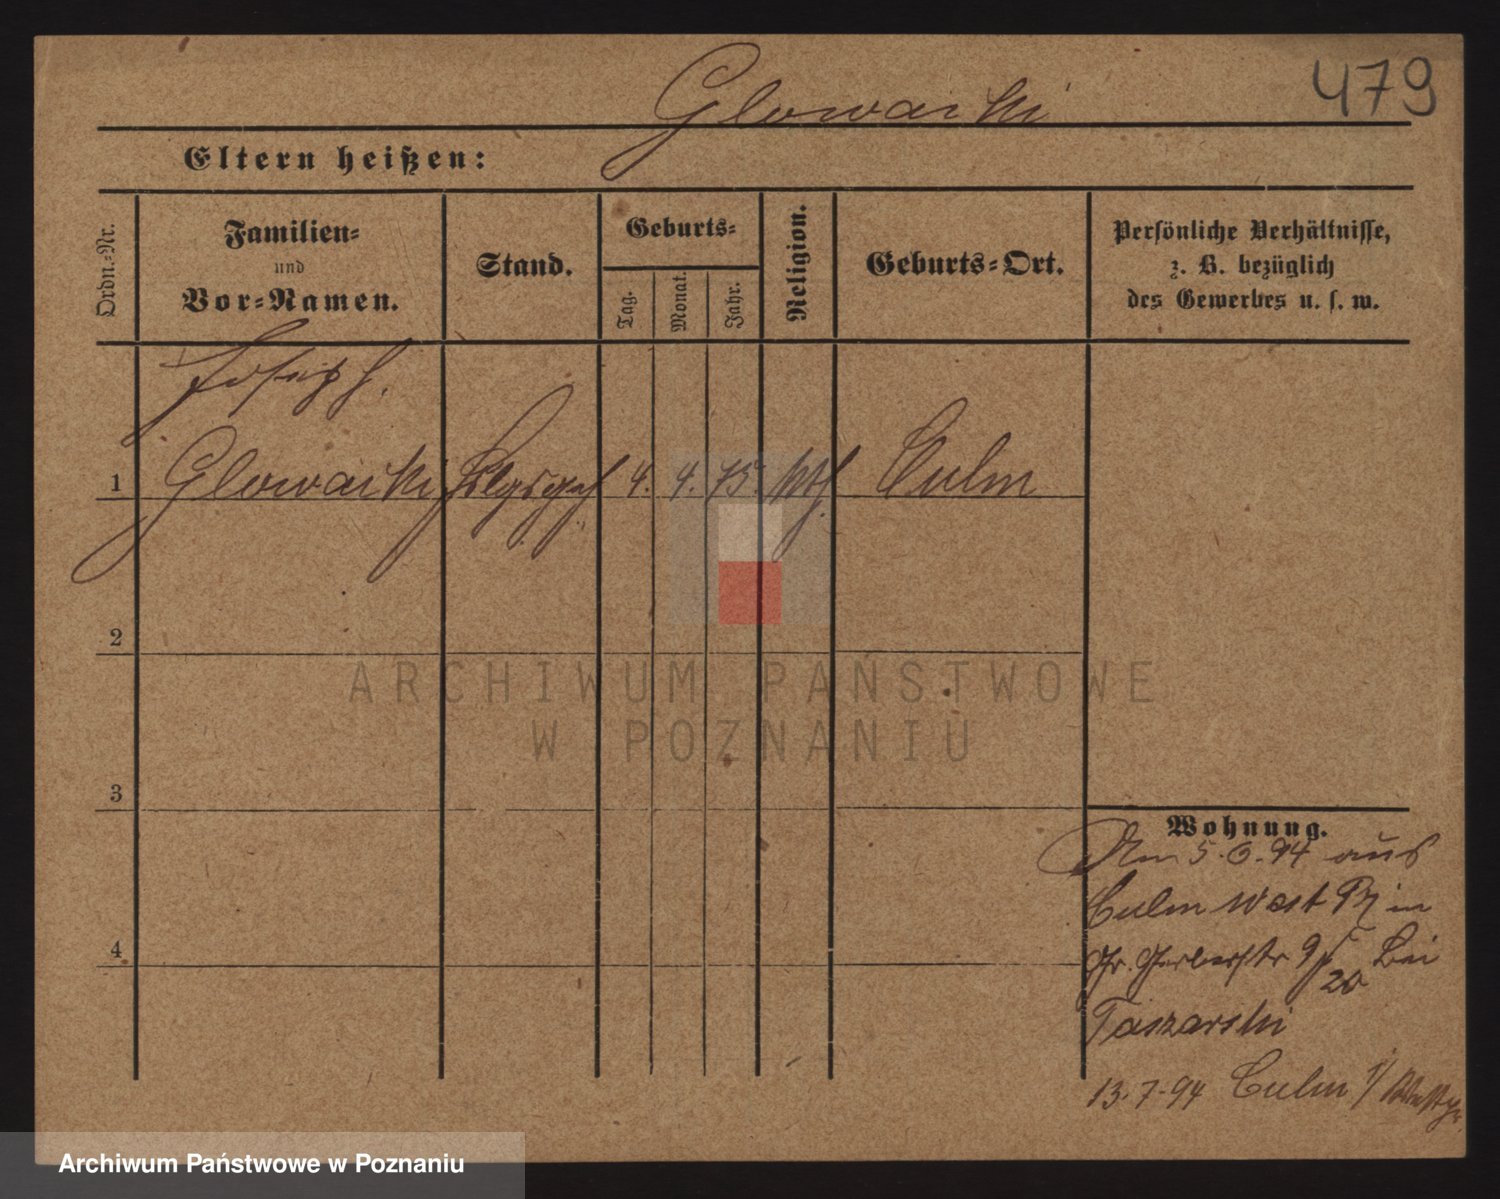 479
Glowacki
Eltern heißen:
Ordn.-Nr.
Familien-
und
Vor-Namen.
Stand.
Geburts-
Tag.
Monat.
Jahr.
Religion.
Geburts-Ort.
Persönliche Verhältnisse,
z. B. bezüglich
des Gewerbes u. s. w.
Joseph.
1 Glowacki 4. 4. 75. kth. Culm
2
3
4
Wohnung.
Am 5.6.94 aus
Culm West Pr in
Gr. Gerberstr 9/20 bei
Taszarski
13.7.94 Culm
ARCHIWUM PAŃSTWOWE
W POZNANIU
Archiwum Państwowe w Poznaniu